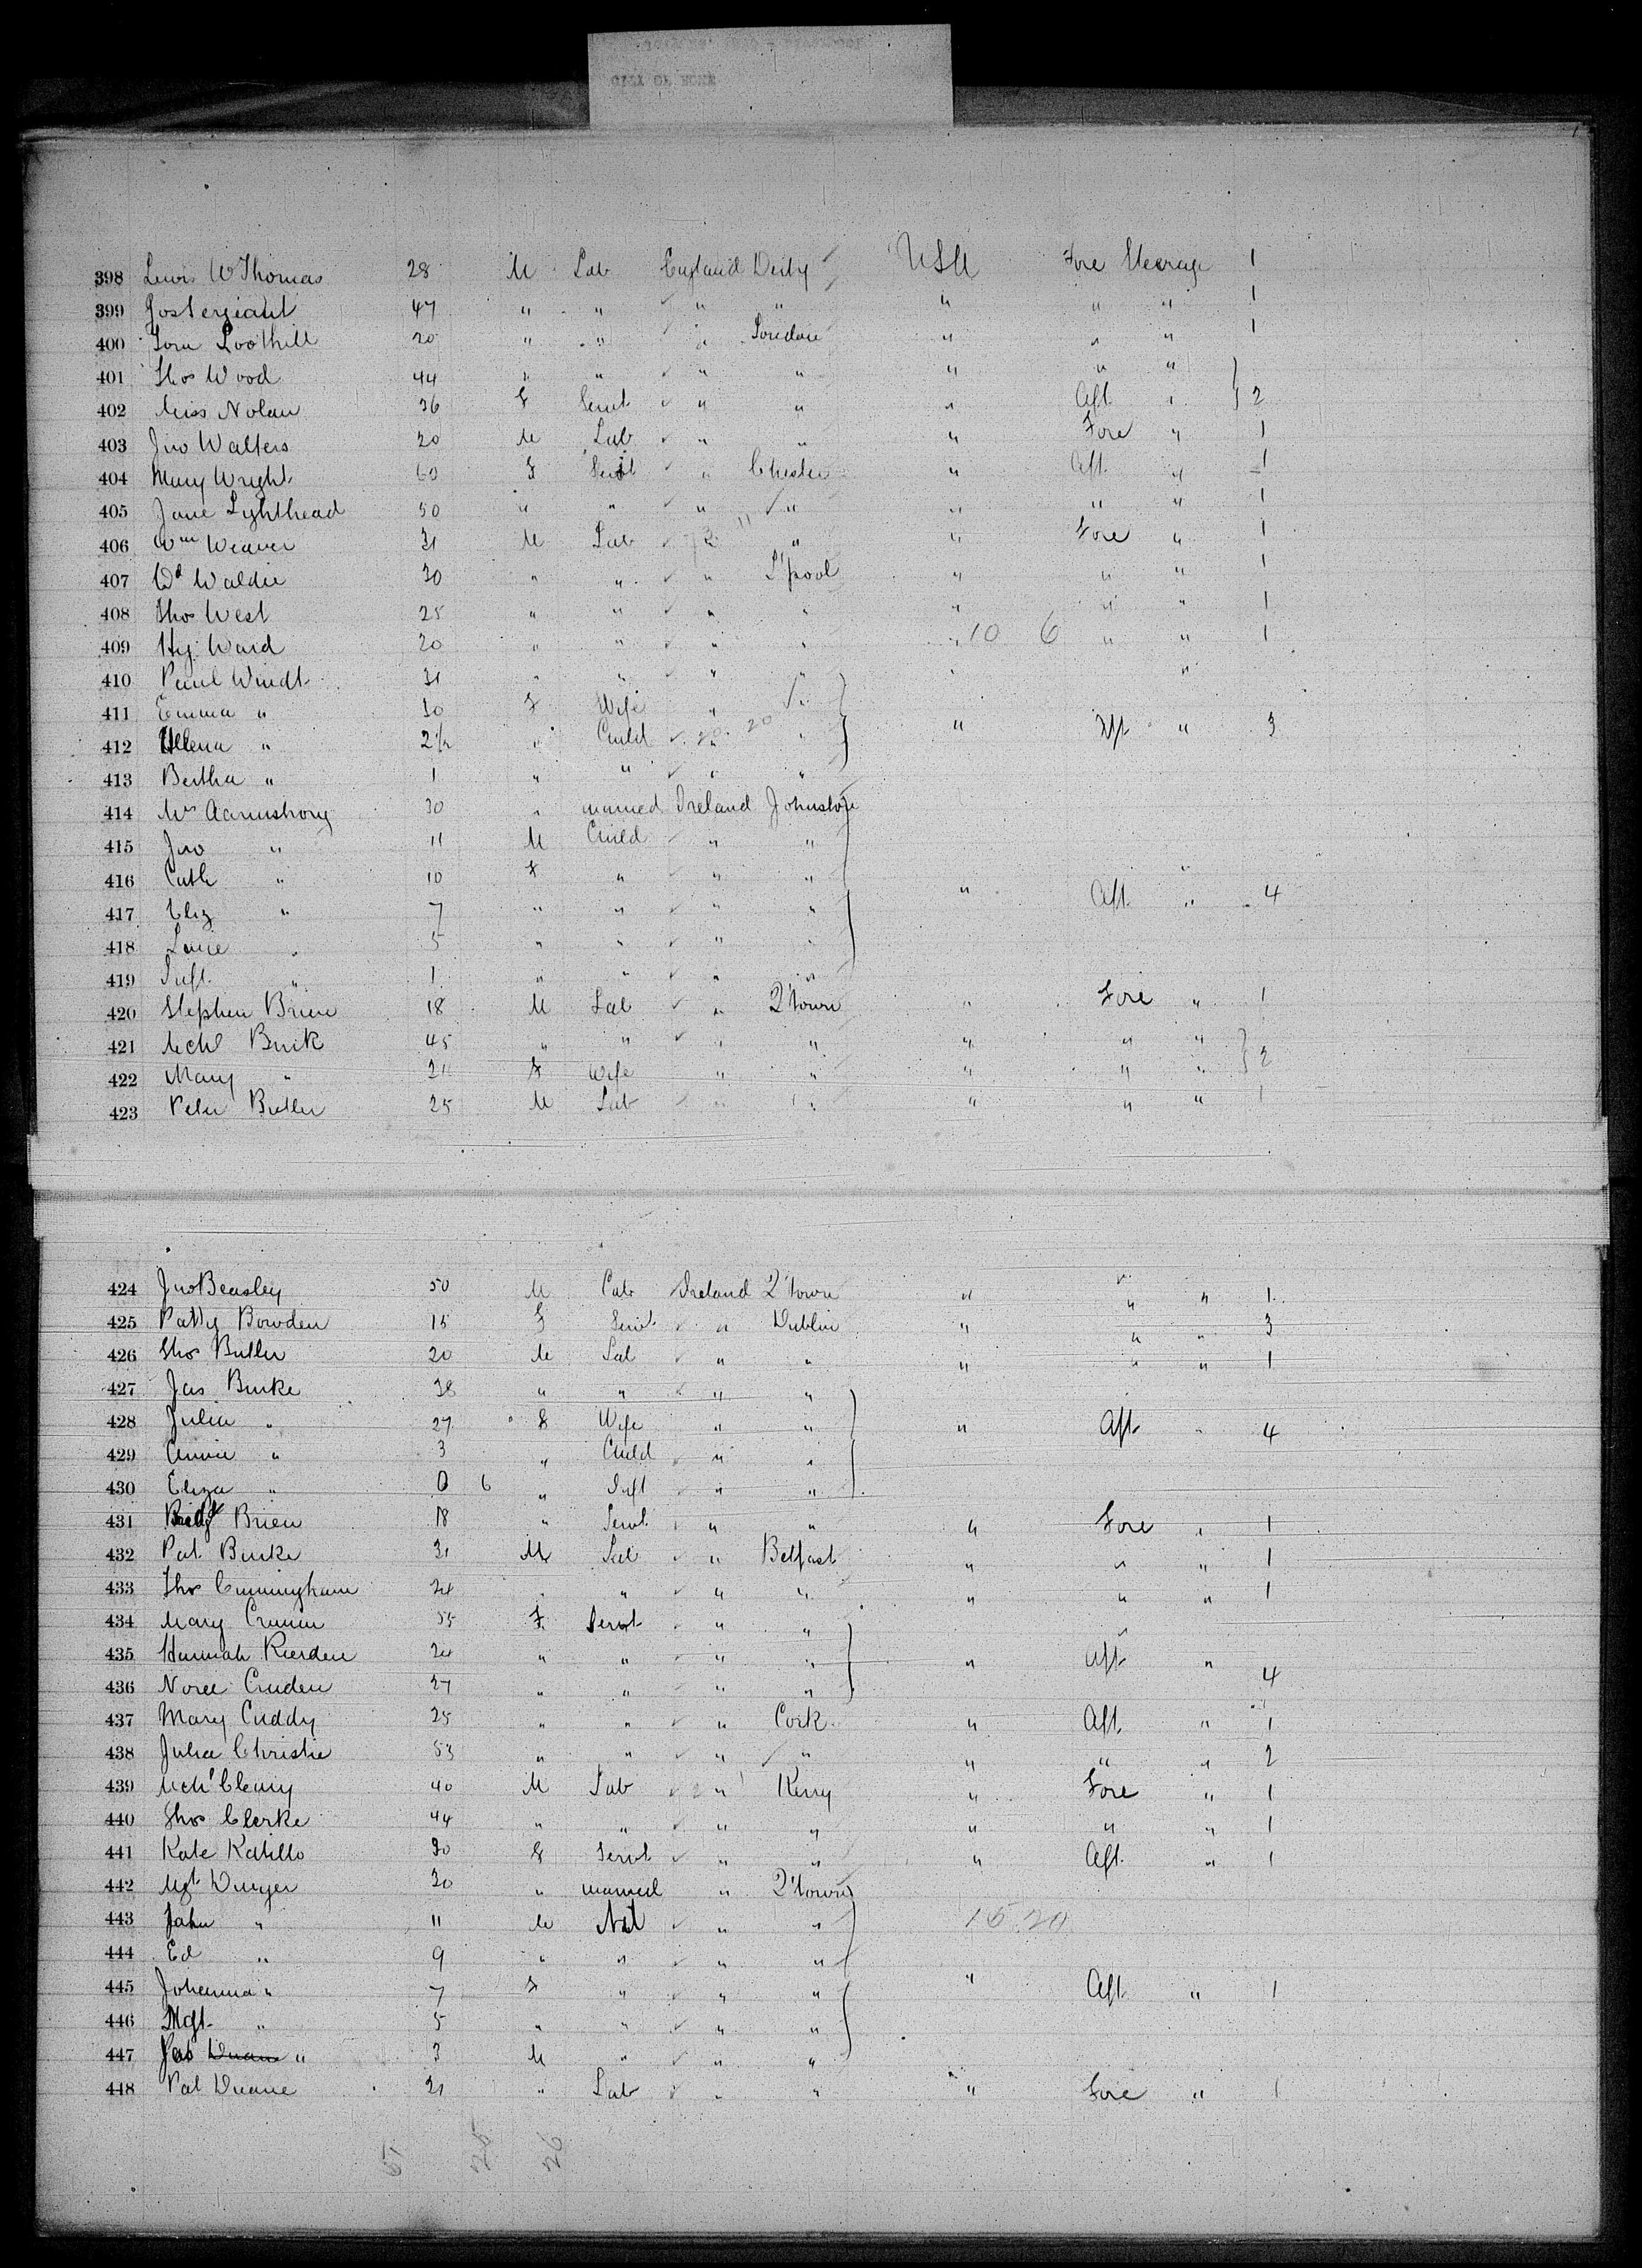 CITY OF ROME
398 Lewis W Thomas 28 M Lab England Derby USA Fore Steerage 1
399 Jos Sergeant 47 " " " " " " " 1
400 Tom Toothill 20 " " " " " " 1
401 Thos Wood 44 " " " " " " "
402 Miss Nolan 36 F Servt " " " Aft " 2
403 Jno Walters 20 M Lab " " " Fore " 1
404 Mary Wright 60 F Servt " Chester " Aft " 1
405 Jane Lighthead 50 " " " " " " " 1
406 Wm Weaver 31 M Lab " " Fore " 1
407 Wd Waldie 30 " " " L'pool " " " 1
408 Thos West 25 " " " " " " " 1
409 Hy Ward 20 " " " " " 10 6 " " 1
410 Paul Windt 31 " " " " " "
411 Emma " 30 F Wife " "
412 Ellena " 2½ " Child " 20 20 " " Aft " 3
413 Bertha " 1 " " " "
414 Mrs Aarmstrong 30 " married Ireland Johnston
415 Jno " 11 M Child " "
416 Cath " 10 F " " " " "
417 Eliz " 7 " " " " Aft " 4
418 " 5 " " " "
419 Inft " 1 " " " "
420 Stephen Brien 18 M Lab " Q'town " Fore " 1
421 Mchl Burk 45 " " " " " " "
422 Mary " F Wife " " " " " 2
423 Peter Butler 25 M Lab " " " " " 1
424 Jno Beasley 50 M Lab Ireland Q'town " " " 1
425 Patty Bowden 15 F Servt " Dublin " " " 3
426 Thos Butler 20 M Lab " " " " " 1
427 Jas Burke 38 " " " "
428 Julia " 27 F Wife " " " Aft " 4
429 Annie " 3 " Child " "
430 Eliza " 0 6 " Inft " "
431 Bridgt Brien 18 " Servt " " " Fore " 1
432 Pat Burke 31 M Lab " Belfast " " " 1
433 Thos Cunningham 24 " " " " " " " 1
434 Mary Cronin 55 F Servt " " "
435 Hannah Rierden 24 " " " " " Aft "
436 Noree Cruden 27 " " " " 4
437 Mary Cuddy 25 " " " Cork " Aft " 1
438 Julia Christie 53 " " " " " " " 2
439 Mchl Cleary 40 M Lab " Kerry " Fore " 1
440 Thos Clerke 44 " " " " " " " 1
441 Kate Katillo 30 F Servt " " " Aft " 1
442 Mgt Dwyer 30 " married " Q'town
443 John " 11 M " " 15 20
444 Ed " 9 " " " "
445 Johanna " 7 F " " " " Aft " 1
446 Mgt " 5 " " " "
447 " 3 M " " "
448 Pat Duane 21 " Lab " " " Fore " 1